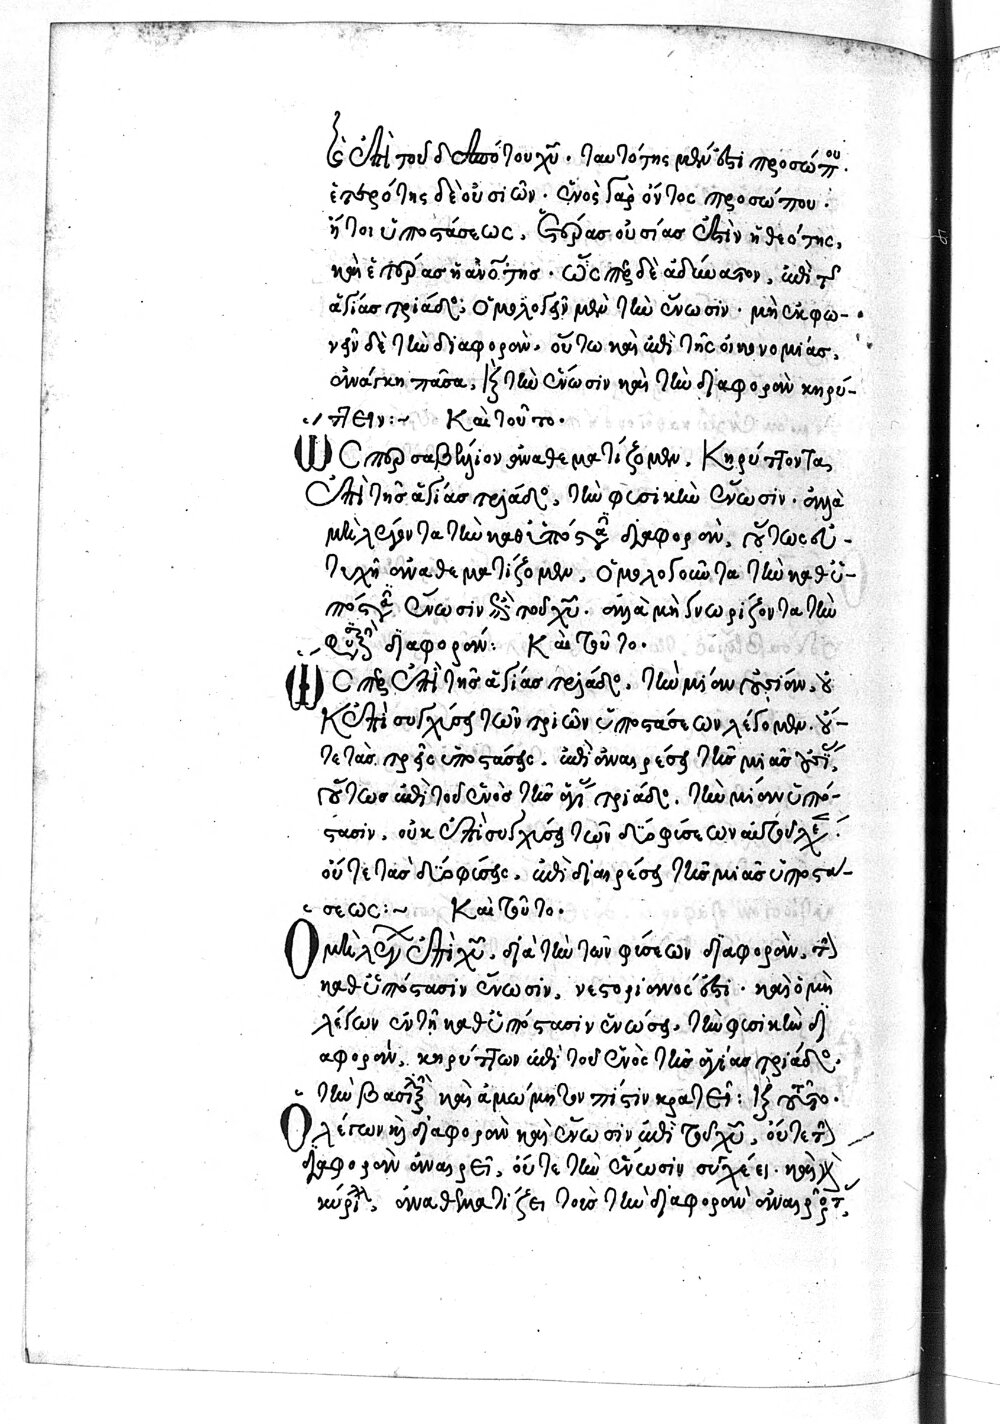 ἐπὶ τοῦ δεσπότου χῦ. ταυτότης μέν ἐστι προσώπου.
ἑτερότης δὲ οὐσιῶν. ἑνὸς γὰρ ὄντος προσώπου.
ἤτοι ὑποστάσεως, ἑτέρας οὐσίας ἐστὶν ἡ θεότης,
καὶ ἑτέρας ἡ ἀνότης. ὥσπερ δὲ ἀδύνατον, ἐπὶ τῆς
ἁγίας τριάδος, ὁμολογεῖν μὲν τὴν ἕνωσιν. μὴ ἐκφω-
νεῖν δὲ τὴν διαφοράν. οὕτω καὶ ἐπὶ τῆς οἰκονομίας,
ἀνάγκη πᾶσα, καὶ τὴν ἕνωσιν καὶ τὴν διαφορὰν κηρύ-
ττειν:~ Καὶ τοῦτο.
Ὥσπερ σαβέλλιον ἀναθεματίζομεν, Κηρύττοντα
ἐπὶ τῆς ἁγίας τριάδος, τὴν φυσικὴν ἕνωσιν. ἀλλὰ
μὴ λέγοντα τὴν καθ' ὑπόστασιν διαφοράν, οὕτως εὐ-
τυχῆ ἀναθεματίζομεν, ὁμολογοῦντα τὴν καθ' ὑ-
πόστασιν ἕνωσιν ἐπὶ τοῦ χῦ. ἀλλὰ μὴ γνωρίζοντα τὴν
φυσικὴν διαφοράν: Καὶ τοῦτο.
Ὥσπερ ἐπὶ τῆς ἁγίας τριάδος, τὴν μίαν οὐσίαν, οὐ
κ ἐπὶ συγχύσει τῶν τριῶν ὑποστάσεων λέγομεν. οὔ-
τε τὰς τρεῖς ὑποστάσεις, ἐπὶ ἀναιρέσει τῆς μιᾶς οὐσίας,
οὕτως ἐπὶ τοῦ ἑνὸς τῆς ἁγίας τριάδος, τὴν μίαν ὑπό-
στασιν, οὐκ ἐπὶ συγχύσει τῶν δύο φύσεων αὐτοῦ λέγομεν.
οὔτε τὰς δύο φύσεις, ἐπὶ διαιρέσει τῆς μιᾶς ὑποστά-
σεως:~ Καὶ τοῦτο.
Ὁ μὴ λέγων ἐπὶ χῦ, διὰ τὴν τῶν φύσεων διαφοράν, τὴν
καθ' ὑπόστασιν ἕνωσιν, νεστοριανός ἐστι. καὶ ὁ μὴ
λέγων ἐν τῇ καθ' ὑπόστασιν ἑνώσει, τὴν φυσικὴν δι
αφοράν, κηρύττων ἐπὶ τοῦ ἑνὸς τῆς ἁγίας τριάδος.
τὴν βασιλικὴν καὶ ἀμώμητον πίστιν κρατεῖ: Καὶ τοῦτο.
Ὁ λέγων καὶ διαφορὰν καὶ ἕνωσιν ἐπὶ τοῦ χῦ, οὔτε τὴν
διαφορὰν ἀναιρεῖ, οὔτε τὴν ἕνωσιν συγχέει. καὶ
κύριλλος, ἀναθεματίζει τοὺς τὴν διαφορὰν ἀναιροῦντας,